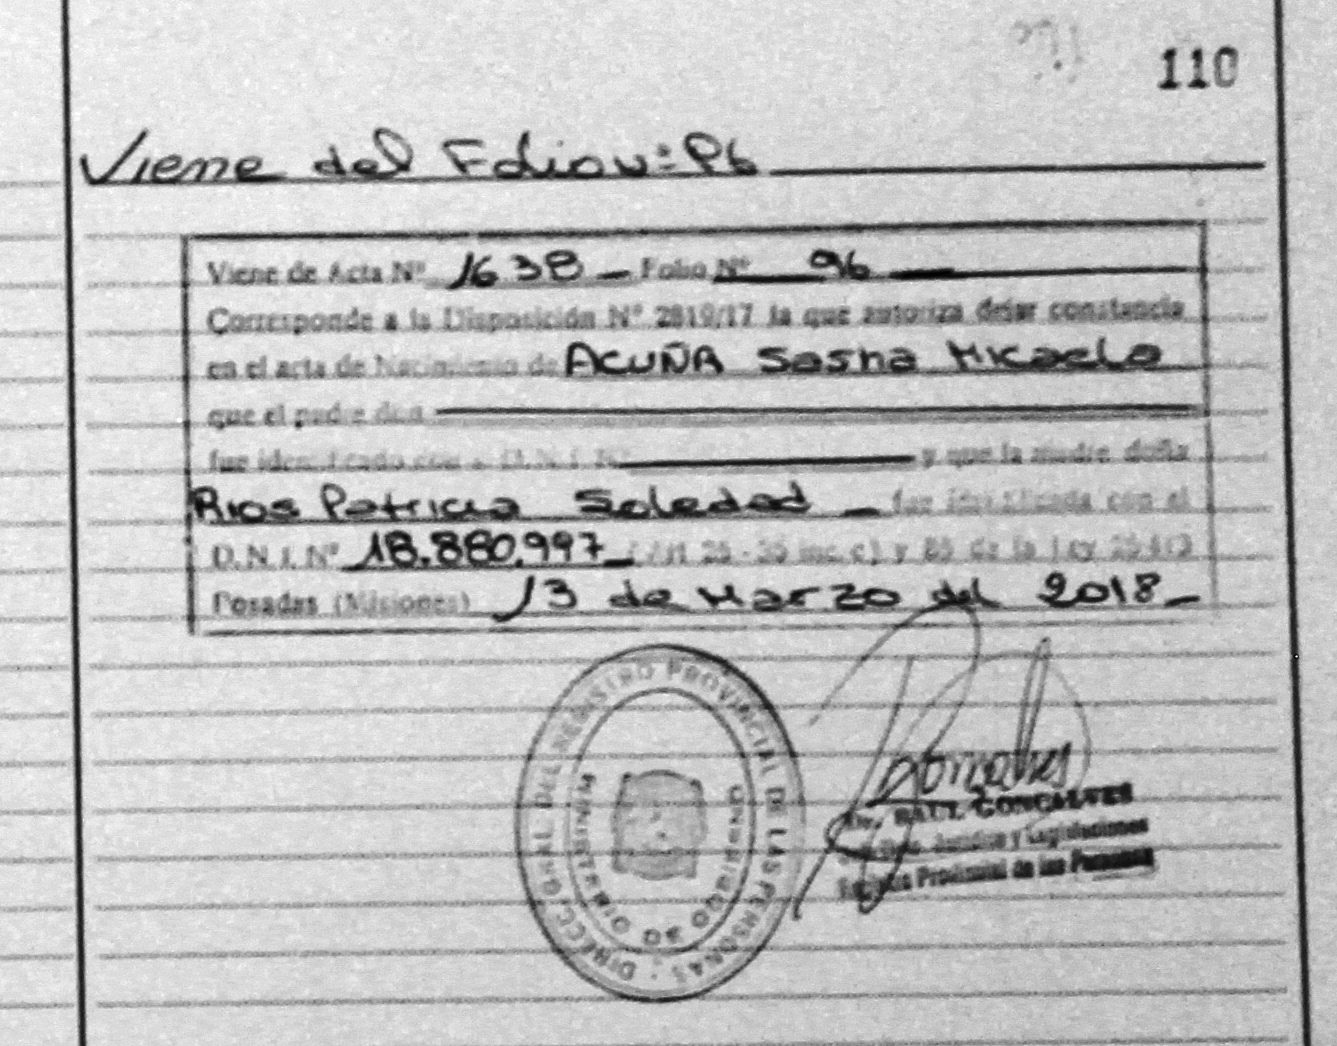 110
Viene del Folio Nº: 96
Viene de Acta Nº 1638 Folio Nº 96
Corresponde a la Disposición Nº 2819/17 la que autoriza dejar constancia
en el acta de Nacimiento de ACUÑA Sasha Micaela
que el padre don
fue identificado con el D.N.I. Nº y que la madre doña
Rios Patricia Soledad fue identificada con el
D.N.I. Nº 18.880.997 inc. c) y 85 de la Ley
Posadas (Misiones) 13 de Marzo del 2018
DIRECC. GRAL. DEL REGISTRO PROVINCIAL DE LAS PERSONAS
Dr. RAUL GONCALVES
Jurídico y Legislaciones
Registro Provincial de las Personas